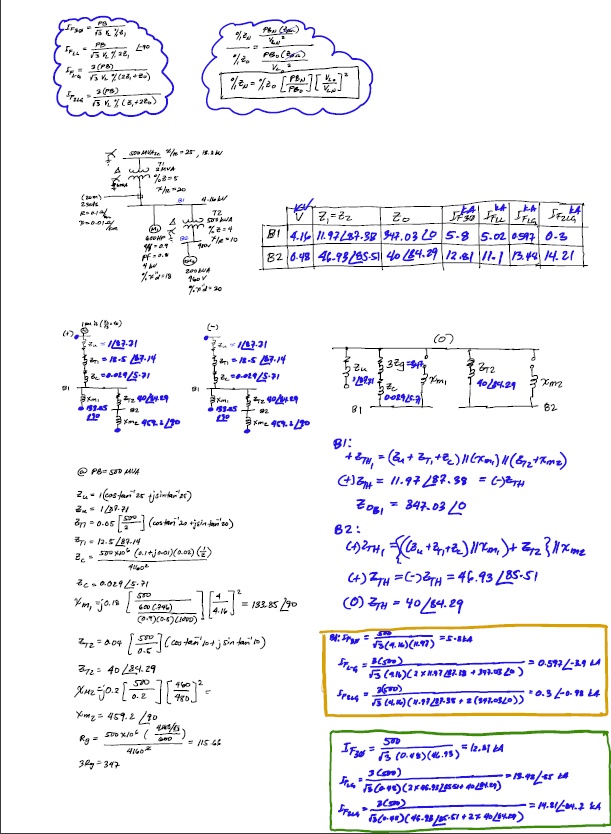 IF3Ø = PB / √3 VL % Z1
IFLL = PB / √3 VL % 2Z1 ∠90
IFLG = 3(PB) / √3 VL % (2Z1+Z0)
IF2LG = 3(PB) / √3 VL % (Z1+2Z0)
%ZN / %Z0 =
%ZN = %Z0 [PBN / PBO] [VLO / VLN]²
500 MVAsc X/R = 25, 13.2 kV
T1
2 MVA
%Z=5
X/R=20
(20m)
2sets
B1 4.16 kV
T2
500 kVA
%Z=4
X/R=10
M1
600HP
pf = 0.8
4 kV
%X"d=18
B2
480V
200kVA
460V
%X"d=20
kV kA kA kA kA
V Z1=Z2 Z0 IF3Ø IFLL IFLG IF2LG
B1 4.16 11.97∠87.38 347.03∠0 5.8 5.02 0.597 0.3
B2 0.48 46.93∠85.51 40∠84.29 12.81 11.1 13.48 14.21
(+) (-) (0)
Zu = 1∠87.71
ZT1 = 12.5∠87.14
Zc = 0.029∠5.71
B1
Xm1 133.85∠90
ZT2 40∠84.29
B2
Xm2 459.2∠90
Zu = 1∠87.71
ZT1 = 12.5∠87.14
Zc = 0.029∠5.71
B1
Xm1 133.85∠90
ZT2 40∠84.29
B2
Xm2 459.2∠90
Zu
3Zg=347
Zc
0.029∠5.71
Xm1
ZT2
40∠84.29
Xm2
B1 B2
@ PB=500 MVA
Zu = 1(cos tan⁻¹ 25 + j sin tan⁻¹ 25)
Zu = 1∠87.71
ZT1 = 0.05 [500 / 2] (cos tan⁻¹ 20 + j sin tan⁻¹ 20)
ZT1 = 12.5∠87.14
Zc = 500×10⁶ (0.1+j0.01)(0.02)(1/2) / 4160²
Zc = 0.029∠5.71
Xm1 = j0.18 [500 / 600(.746) / (0.9)(0.8)(1000)] [4 / 4.16]² = 133.85∠90
ZT2 = 0.04 [500 / 0.5] (cos tan⁻¹ 10 + j sin tan⁻¹ 10)
ZT2 = 40∠84.29
Xm2 = j0.2 [500 / 0.2] [460 / 480]² =
Xm2 = 459.2∠90
Rg = / 4160² = 115.66
3Rg = 347
B1:
+ZTH1 = (Zu + ZT1 + Zc) // (Xm1) // (ZT2 + Xm2)
(+) ZTH = 11.97∠87.38 = (-) ZTH
Z0B1 = 347.03∠0
B2:
(+) ZTH1 = {((Zu + ZT1 + Zc) // Xm1) + ZT2} // Xm2
(+) ZTH = (-) ZTH = 46.93∠85.51
(0) ZTH = 40∠84.29
B1: IF3Ø = 500 / √3 (4.16)(11.97) = 5.8 kA
IFLG = 3(500) / √3 (4.16)(2×11.97∠87.38 + 347.03∠0) = 0.597∠-3.9 kA
IF2LG = 3(500) / √3 (4.16)(11.97∠87.38 + 2(347.03∠0)) = 0.3∠-0.98 kA
IF3Ø = 500 / √3 (0.48)(46.93) = 12.81 kA
IFLG = 3(500) / √3 (0.48)(2×46.93∠85.51 + 40∠84.29) = 13.48∠-85 kA
IF2LG = 3(500) / √3 (0.48)(46.93∠85.51 + 2×40∠84.29) = 14.21∠-84.7 kA